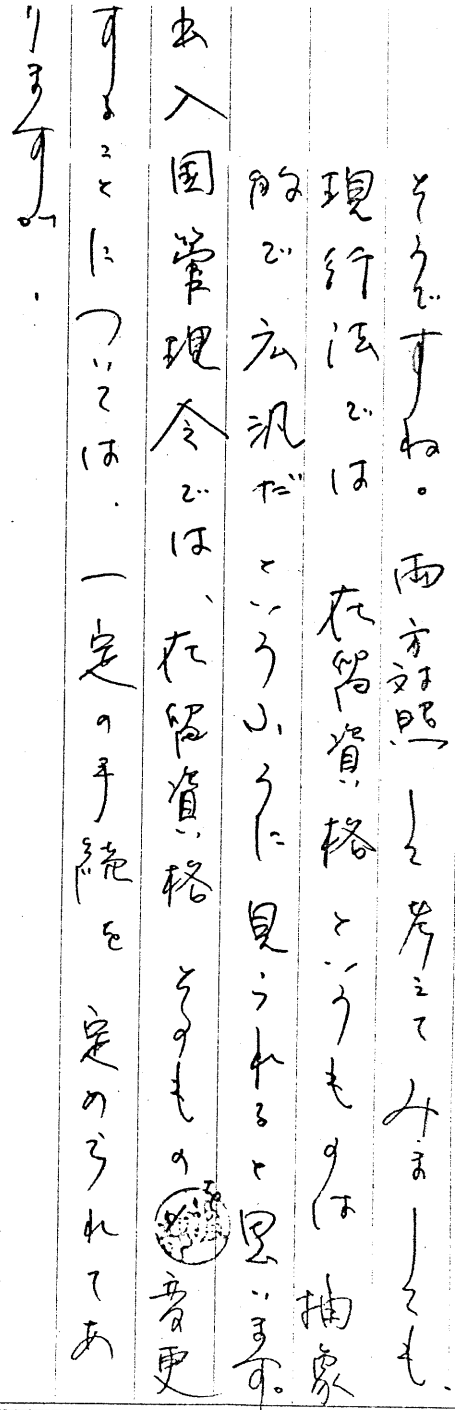 そうですね。両方対照して考えてみましても、
現行法では在留資格というものは抽象
的で広汎だというふうに見られると思います。
出入国管理令では、在留資格そのもの変更
することについては、一定の手続を定められてあ
りますが、